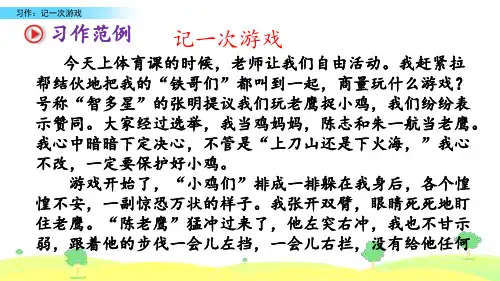 习作：记一次游戏
习作范例
记一次游戏
今天上体育课的时候，老师让我们自由活动。我赶紧拉
帮结伙地把我的“铁哥们”都叫到一起，商量玩什么游戏？
号称“智多星”的张明提议我们玩老鹰捉小鸡，我们纷纷表
示赞同。大家经过选举，我当鸡妈妈，陈志和朱一航当老鹰。
我心中暗暗下定决心，不管是“上刀山还是下火海，”我心
不改，一定要保护好小鸡。
游戏开始了，“小鸡们”排成一排躲在我身后，各个惶
惶不安，一副惊恐万状的样子。我张开双臂，眼睛死死地盯
住老鹰。“陈老鹰”猛冲过来了，他左突右冲，我也不甘示
弱，跟着他的步伐一会儿左挡，一会儿右拦，没有给他任何